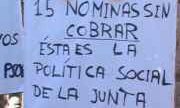 15 NOMINAS SIN
COBRAR
ÉSTA ES LA
POLÍTICA SOCIAL
DE LA JUNTA